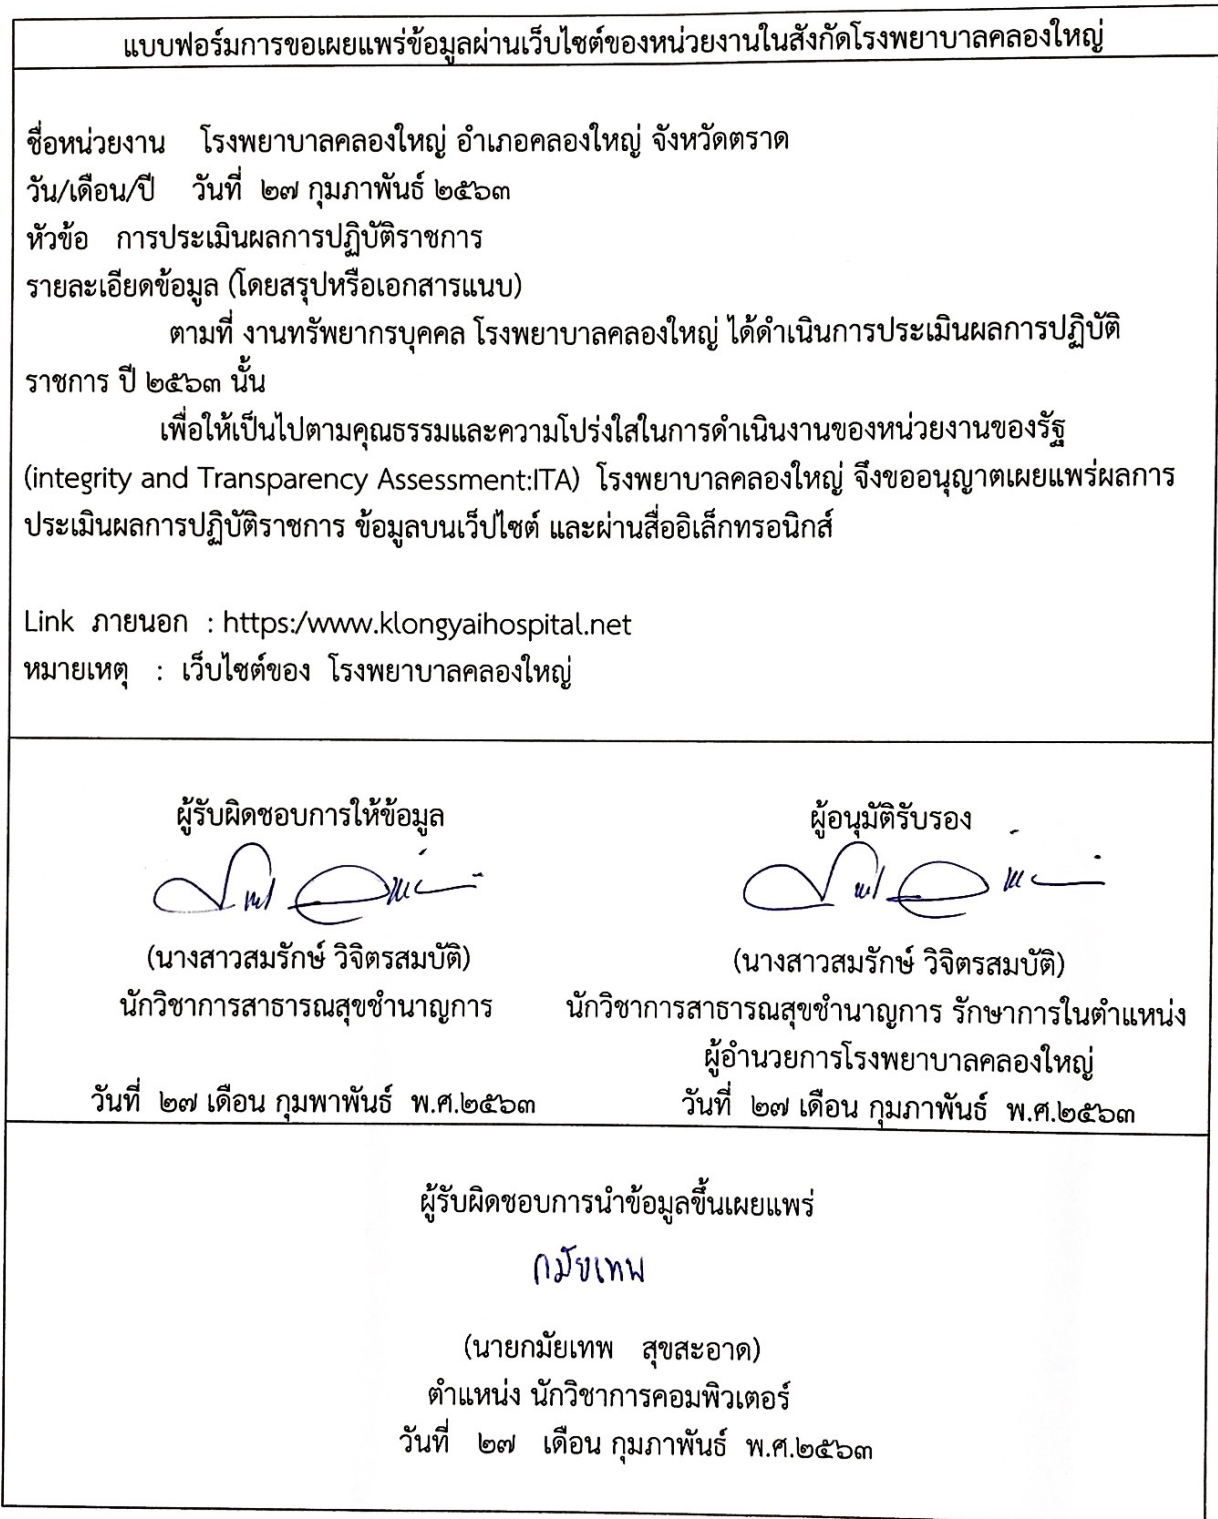 แบบฟอร์มการขอเผยแพร่ข้อมูลผ่านเว็บไซต์ของหน่วยงานในสังกัดโรงพยาบาลคลองใหญ่
ชื่อหน่วยงาน โรงพยาบาลคลองใหญ่ อำเภอคลองใหญ่ จังหวัดตราด
วัน/เดือน/ปี วันที่ ๒๗ กุมภาพันธ์ ๒๕๖๓
หัวข้อ การประเมินผลการปฏิบัติราชการ
รายละเอียดข้อมูล (โดยสรุปหรือเอกสารแนบ)
ตามที่ งานทรัพยากรบุคคล โรงพยาบาลคลองใหญ่ ได้ดำเนินการประเมินผลการปฏิบัติ
ราชการ ปี ๒๕๖๓ นั้น
เพื่อให้เป็นไปตามคุณธรรมและความโปร่งใสในการดำเนินงานของหน่วยงานของรัฐ
(integrity and Transparency Assessment:ITA) โรงพยาบาลคลองใหญ่ จึงขออนุญาตเผยแพร่ผลการ
ประเมินผลการปฏิบัติราชการ ข้อมูลบนเว็ปไซต์ และผ่านสื่ออิเล็กทรอนิกส์
Link ภายนอก : https:/www.klongyaihospital.net
หมายเหตุ : เว็บไซต์ของ โรงพยาบาลคลองใหญ่
ผู้รับผิดชอบการให้ข้อมูล
(นางสาวสมรักษ์ วิจิตรสมบัติ)
นักวิชาการสาธารณสุขชำนาญการ
วันที่ ๒๗ เดือน กุมพาพันธ์ พ.ศ.๒๕๖๓
ผู้อนุมัติรับรอง
(นางสาวสมรักษ์ วิจิตรสมบัติ)
นักวิชาการสาธารณสุขชำนาญการ รักษาการในตำแหน่ง
ผู้อำนวยการโรงพยาบาลคลองใหญ่
วันที่ ๒๗ เดือน กุมภาพันธ์ พ.ศ.๒๕๖๓
ผู้รับผิดชอบการนำข้อมูลขึ้นเผยแพร่
กมัยเทพ
(นายกมัยเทพ สุขสะอาด)
ตำแหน่ง นักวิชาการคอมพิวเตอร์
วันที่ ๒๗ เดือน กุมภาพันธ์ พ.ศ.๒๕๖๓